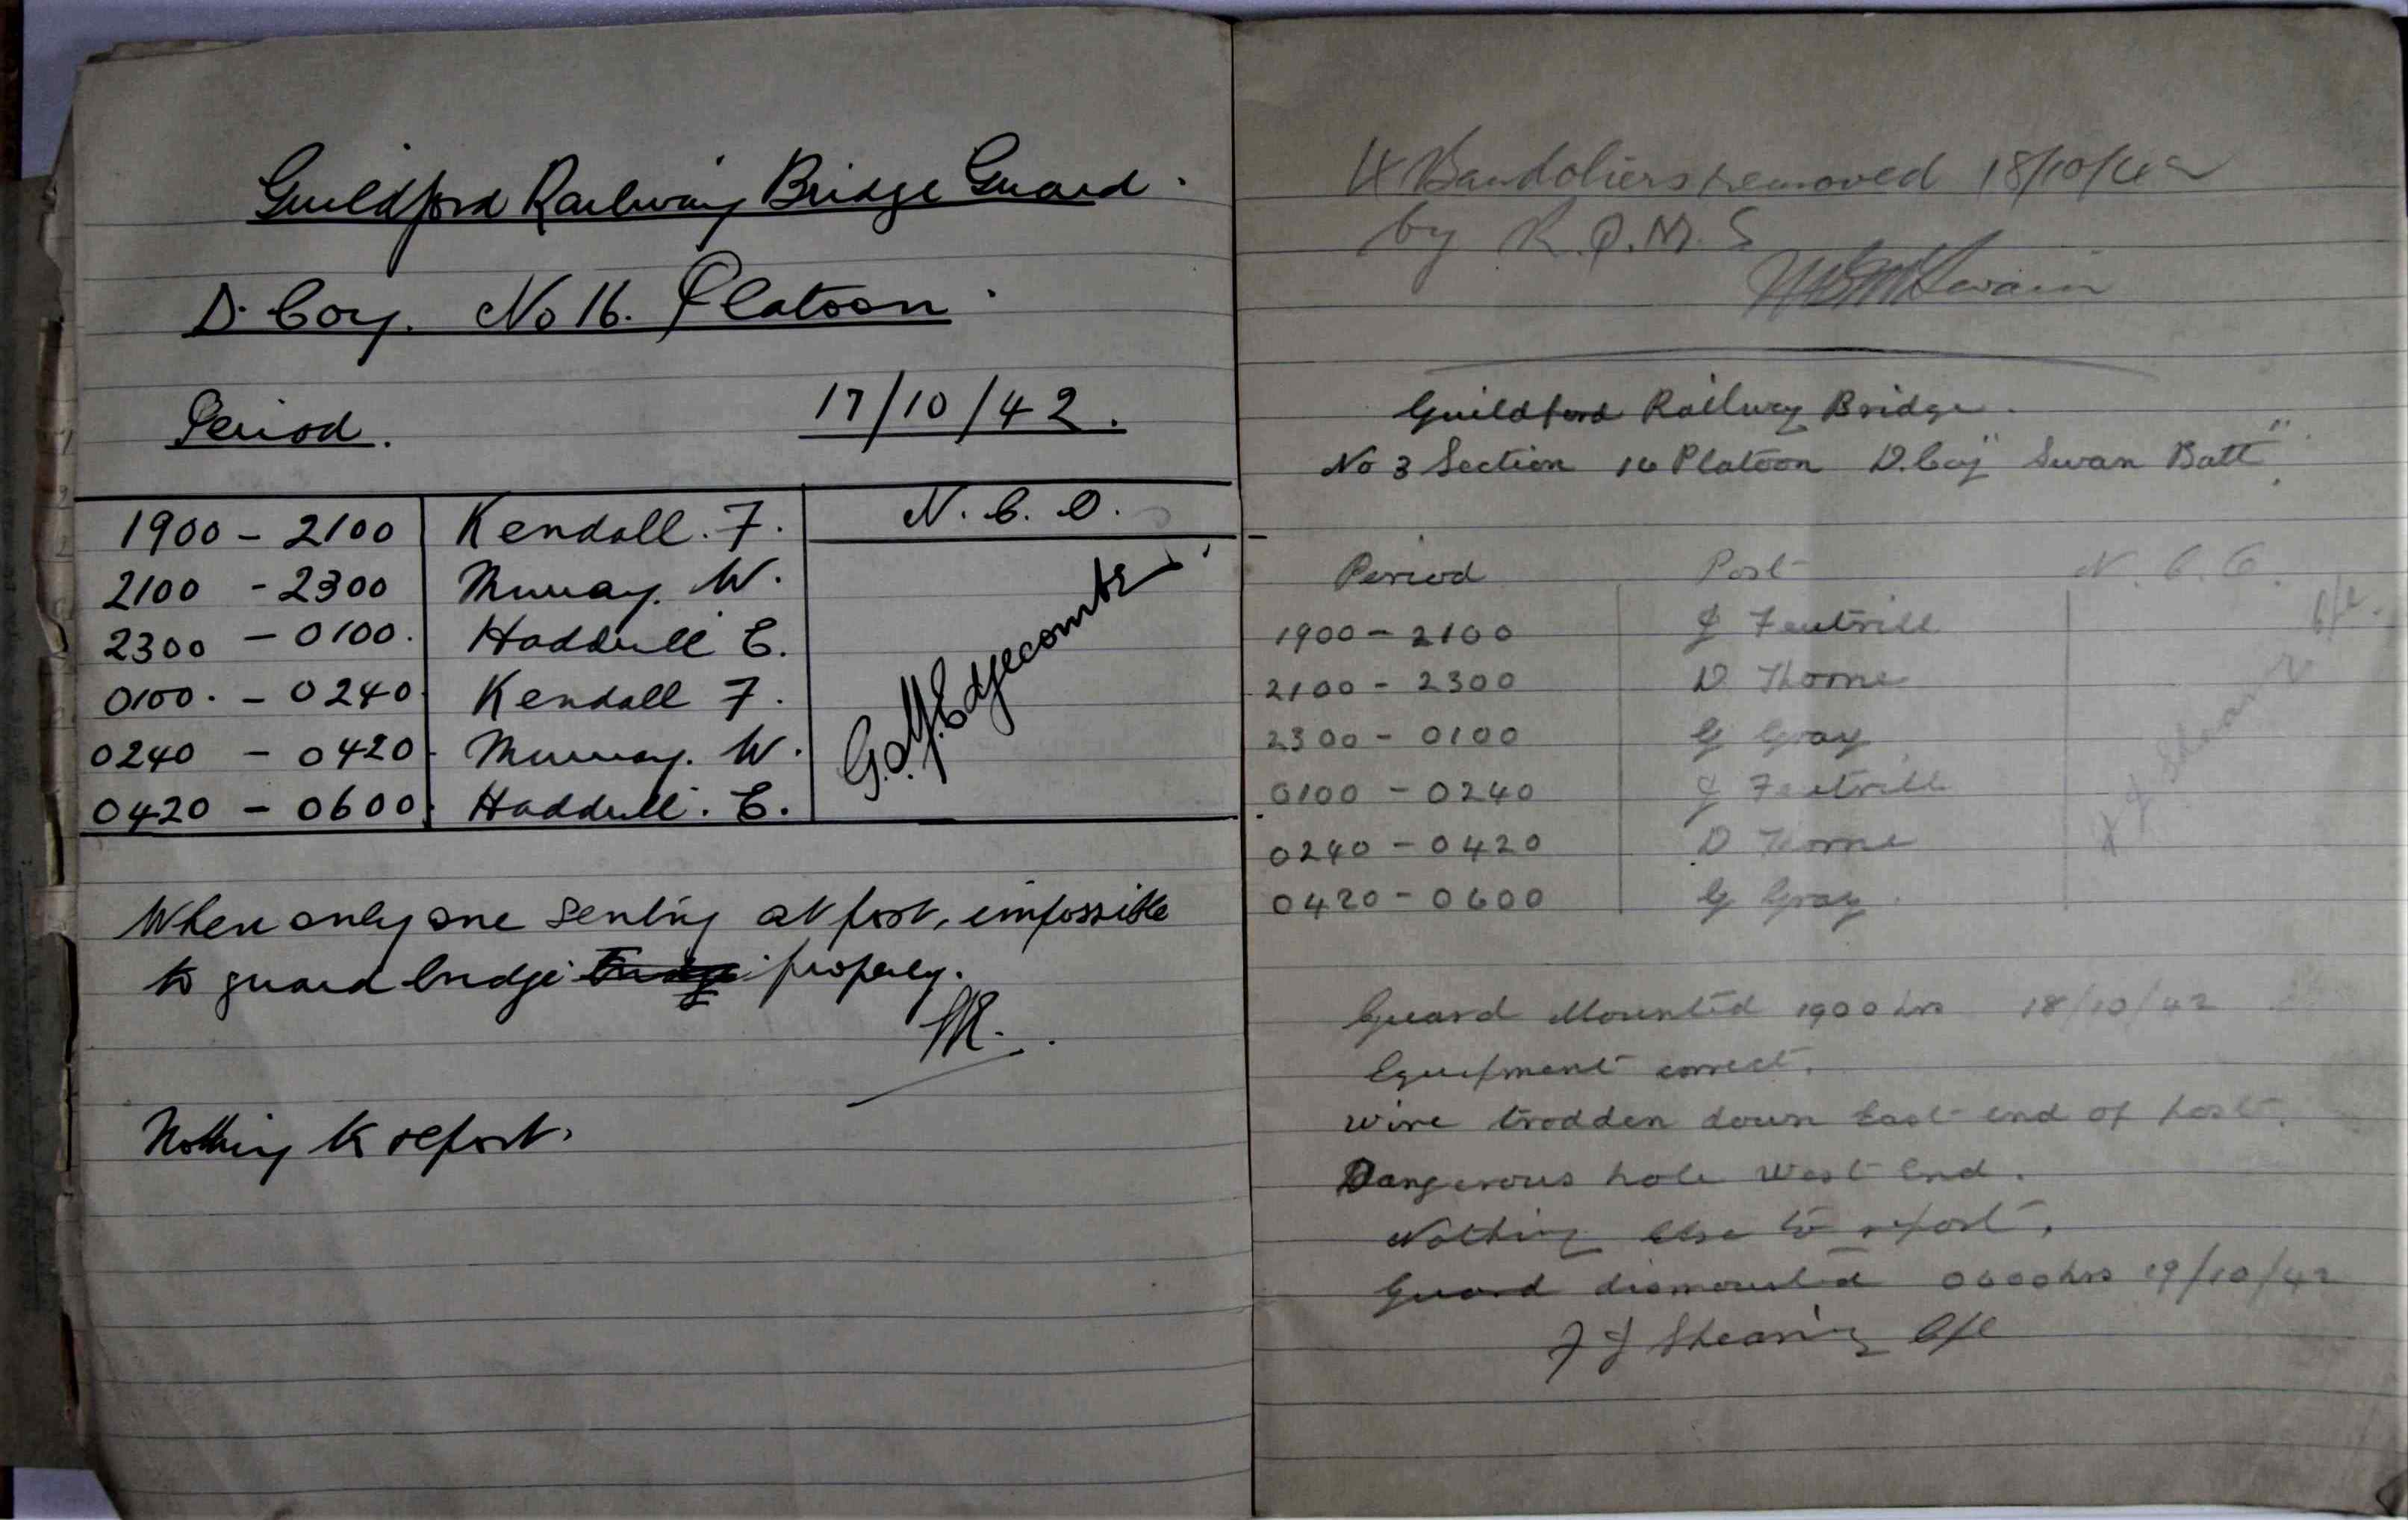 Guildford Railway Bridge Guard.
D. Coy. No 16. Platoon.
Period. 17/10/42.
N. C. O.
1900 - 2100 Kendall. F.
2100 - 2300 Murray. W.
2300 - 0100. Haddrell E.
0100. - 0240. Kendall F.
0240 - 0420. Murray. W.
0420 - 0600. Haddrell. E.
G. Edgecombe
When only one sentry at post, impossible
to guard bridge bridge properly.
Nothing to report.
4 Bandoliers removed 18/10/42
by R.Q.M.S
Swain
Guildford Railway Bridge.
No 3 Section 16 Platoon D. Coy "Swan Batt".
Period Post N. C. O.
1900 - 2100 J Feutrill
2100 - 2300 D Thorne
2300 - 0100 G Gray
0100 - 0240 J Feutrill
0240 - 0420 D Thorne
0420 - 0600 G Gray.
F J Shearing C/l.
Guard Mounted 1900 hrs 18/10/42
Equipment correct.
Wire trodden down East end of post.
Dangerous hole West End.
Nothing else to report.
Guard dismounted 0600 hrs 19/10/42
F J Shearing C/l